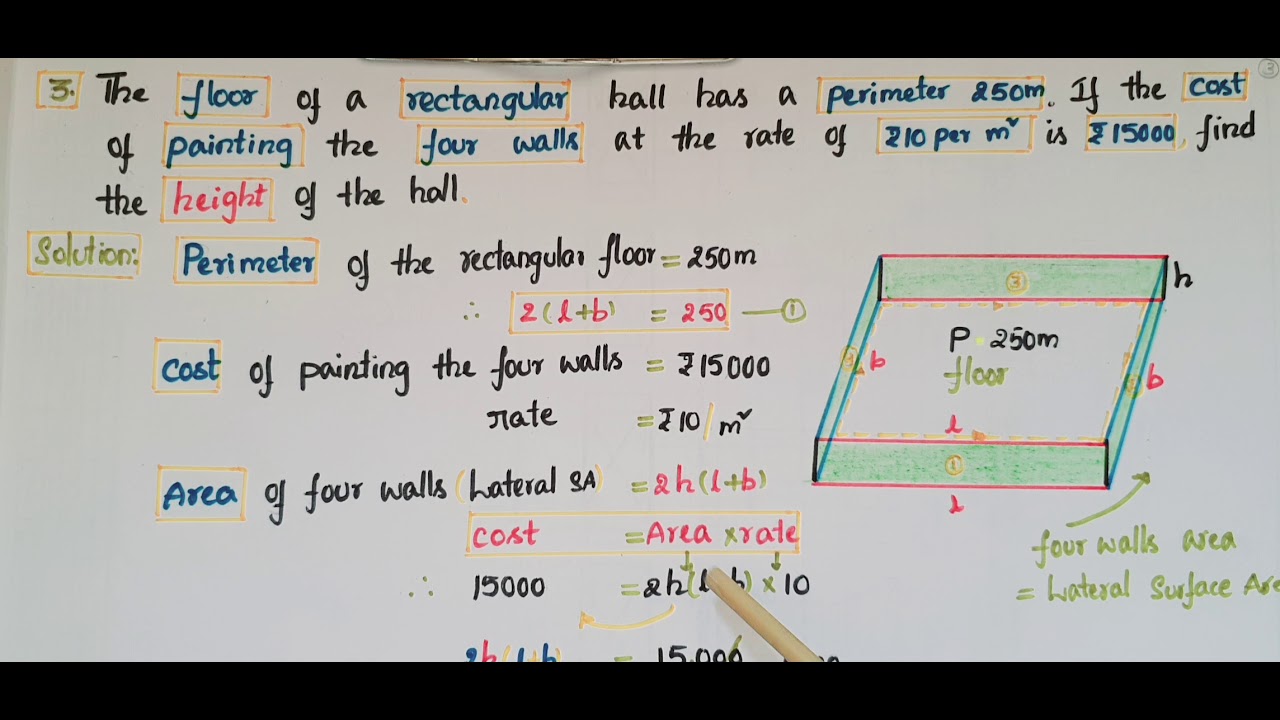 ③
3. The floor of a rectangular hall has a perimeter 250m. If the cost
of painting the four walls at the rate of ₹10 per m² is ₹15000, find
the height of the hall.
Solution: Perimeter of the rectangular floor = 250m
∴ 2(l+b) = 250 — ①
Cost of painting the four walls = ₹15000
rate = ₹10/m²
Area of four walls (Lateral SA) = 2h(l+b)
cost = Area × rate
∴ 15000 = 2h(l+b) × 10
2h(l+b) = 15000
③
h
P = 250m
floor
b
b
l
①
l
four walls area
= Lateral Surface Are